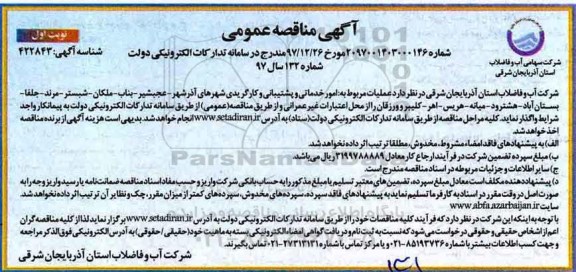 آگهی مناقصه عمومی
نوبت اول
شماره ۲۰۹۷۰۰۱۴۰۳۰۰۰۱۴۶ مورخ ۹۷/۱۲/۲۶ مندرج در سامانه تدارکات الکترونیکی دولت
شناسه آگهی: ۴۲۲۸۴۳
شماره ۱۳۲ سال ۹۷
شرکت سهامی آب و فاضلاب
استان آذربایجان شرقی
شرکت آب و فاضلاب استان آذربایجان شرقی در نظر دارد عملیات مربوط به: امور خدماتی و پشتیبانی و کارگریدی شهرهای آذرشهر - عجبشیر - بناب - ملکان - شبستر - مرند - جلفا -
بستان آباد - هشترود - میانه - هریس - اهر - کلیبر و ورزقان را از محل اعتبارات غیر عمرانی و از طریق مناقصه (عمومی) از طریق سامانه تدارکات الکترونیکی دولت به پیمانکار واجد
شرایط واگذار نماید. کلیه مراحل مناقصه از طریق سامانه تدارکات الکترونیکی دولت (ستاد) به آدرس www.setadiran.ir انجام خواهد شد. بدیهی است هزینه آگهی از برنده مناقصه
اخذ خواهد شد.
الف) به پیشنهادهای فاقد امضاء، مشروط، مخدوش، مطلقا ترتیب اثر داده نخواهد شد.
ب) مبلغ سپرده تضمین شرکت در فرآیند ارجاع کار معادل ۳۱۹۹۷۸۸۸۸۹ ریال می‌باشد.
ج) سایر اطلاعات و جزئیات مربوطه در اسناد مناقصه مندرج است.
د) پیشنهاد دهنده مکلف است معادل مبلغ سپرده، تضمین‌های معتبر تسلیم یا مبلغ مذکور را به حساب بانکی شرکت واریز و حسب مفاد اسناد مناقصه ضمانت‌نامه یا رسید واریز وجه را به
صورت اصل در وقت مقرر در اسناد به کارفرما تسلیم نماید به پیشنهادهای فاقد سپرده، سپرده‌های مخدوش، سپرده‌های کمتر از میزان مقرر، چک و نظایر آن ترتیب اثر داده نخواهد شد.
سایت www.abfaazarbaijan.ir
با توجه به اینکه این شرکت در نظر دارد که فرآیند کلیه مناقصات خود را از طریق سامانه تدارکات الکترونیکی دولت به آدرس www.setadiran.ir برگزار نماید لذا از کلیه مناقصه گران
اعم از اشخاص حقیقی و حقوقی درخواست می‌شود که نسبت به ثبت نام و دریافت گواهی امضاء الکترونیکی بسته به ماهیت خود (حقیقی / حقوقی) به آدرس الکترونیکی فوق الذکر مراجعه
و جهت کسب اطلاعات بیشتر با شماره ۸۵۱۹۳۷۳۶-۰۲۱ و یا مرکز تماس با شماره ۲۷۳۱۳۱۳۱-۰۲۱ تماس بگیرند.
شرکت آب و فاضلاب استان آذربایجان شرقی